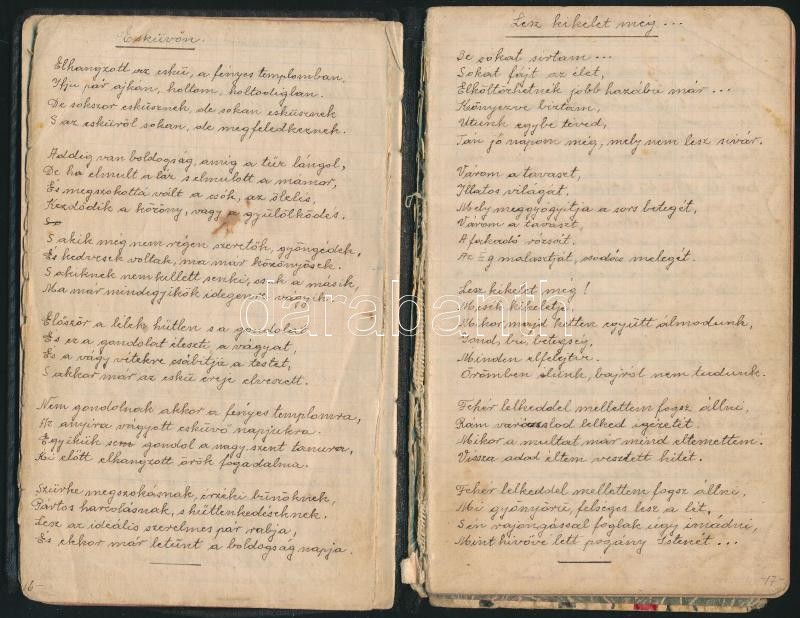 Esküvőn.
Elhangzott az eskü, a fényes templomban.
Ifju pár ajkán, holtom, holtodiglan.
De sokszor esküsznek, de sokan esküsznek
S az esküről sokan, de megfeledkeznek.
Addig van boldogság, amig a tüz lángol,
De ha elmult a láz s elmulott a mámor,
És megszokottá vált a csók, az ölelés,
Kezdődik a közöny, vagy a gyülölködés.
S akik még nem régen szeretők, gyöngédek,
És kedvesek voltak, ma már közönyösek.
S akiknek nem kellett senki, csak a másik,
Ma már mindegyikök idegenre vágyik.
Először a lélek hűtlen s a gondolat
És ez a gondolat éleszti a vágyat,
És a vágy vétekre csábitja a testet,
S akkor már az eskü ereje elveszett.
Nem gondolnak akkor a fényes templomra,
Az annyira vágyott esküvő napjukra.
Egyikük sem gondol a nagy szent tanura,
Ki előtt elhangzott örök fogadalma.
Szürke megszokásnak, érzéki bünöknek,
Pártos harcolásnak, s hűtlenkedéseknek.
Lesz az ideális szerelmes pár rabja,
És ekkor már letünt a boldogság napja.
16-
Lesz kikelet még...
De sokat sirtam...
Sokat fájt az élet,
Elköltözhetnék jobb hazába már...
Könnyezve biztam,
Utunk egybe téved,
Tán jő napom még, mely nem lesz sivár.
Várom a tavaszt,
Illatos világát.
Mely meggyógyitja a sors betegét,
Várom a tavaszt,
A fakadó rózsát.
Az Ég malasztját, csodás melegét.
Lesz kikelet még!
Mesék kikeletje
Mikor majd ketten együtt álmodunk,
Gond, bú, betegség,
Minden elfelejtve.
Örömben élünk, bajról nem tudunk.
Fehér lelkeddel mellettem fogsz állni,
Rám varázslod lelked igézetét.
Mikor a multat már mind eltemettem.
Vissza adod éltem vesztett hitét.
Fehér lelkeddel mellettem fogsz állni,
Mi gyönyörü, felséges lesz a lét,
S én rajongással foglak úgy imádni,
Mint hivővé lett pogány Istenét...
-17-
darabanth